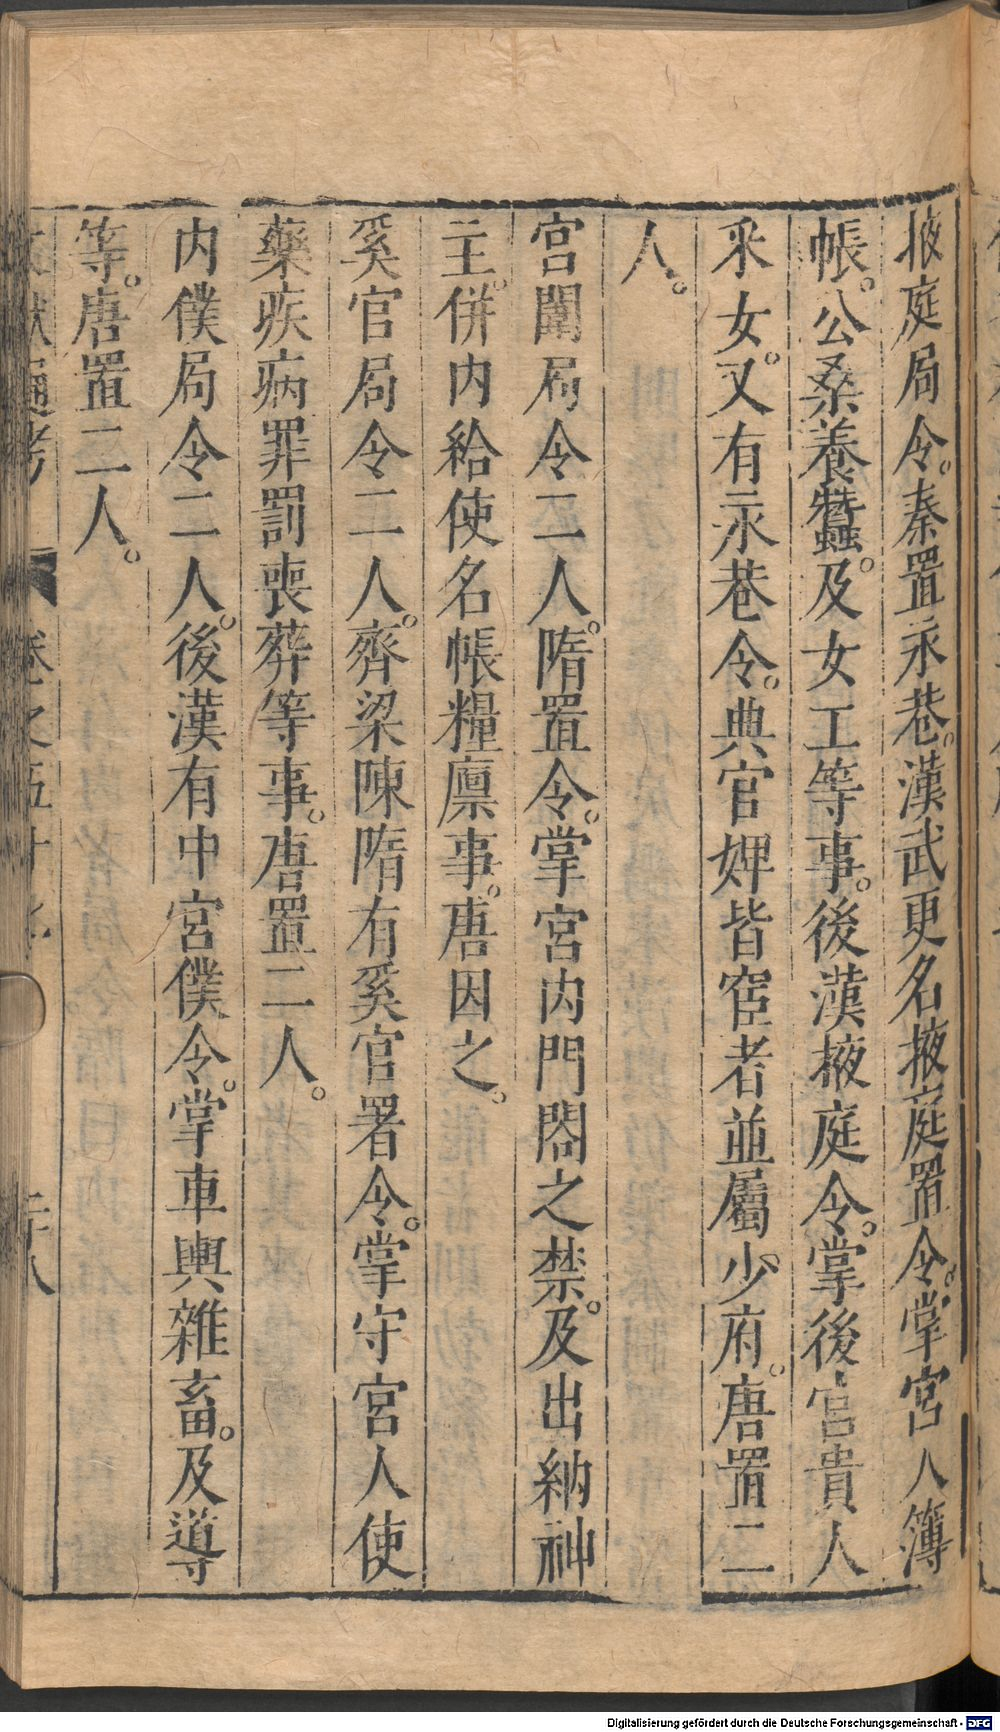 掖庭局令。秦置永巷。漢武更名掖庭置令。掌宮人簿
帳。公桑養蠶。及女工等事。後漢掖庭令。掌後宮貴人
采女。又有永巷令。典官婢皆宦者並屬少府。唐置二
人。
宮闈局令二人。隋置令。掌宮内門閤之禁。及出納神
主。併内給使名帳糧廪事。唐因之。
奚官局令二人。齊梁陳隋有奚官署令。掌守宮人使
藥疾病罪罰喪葬等事。唐置二人。
内僕局令二人。後漢有中宮僕令。掌車輿雜畜。及導
等。唐置二人。
文獻通考 卷之五十七 二十八
Digitalisierung gefördert durch die Deutsche Forschungsgemeinschaft - DFG